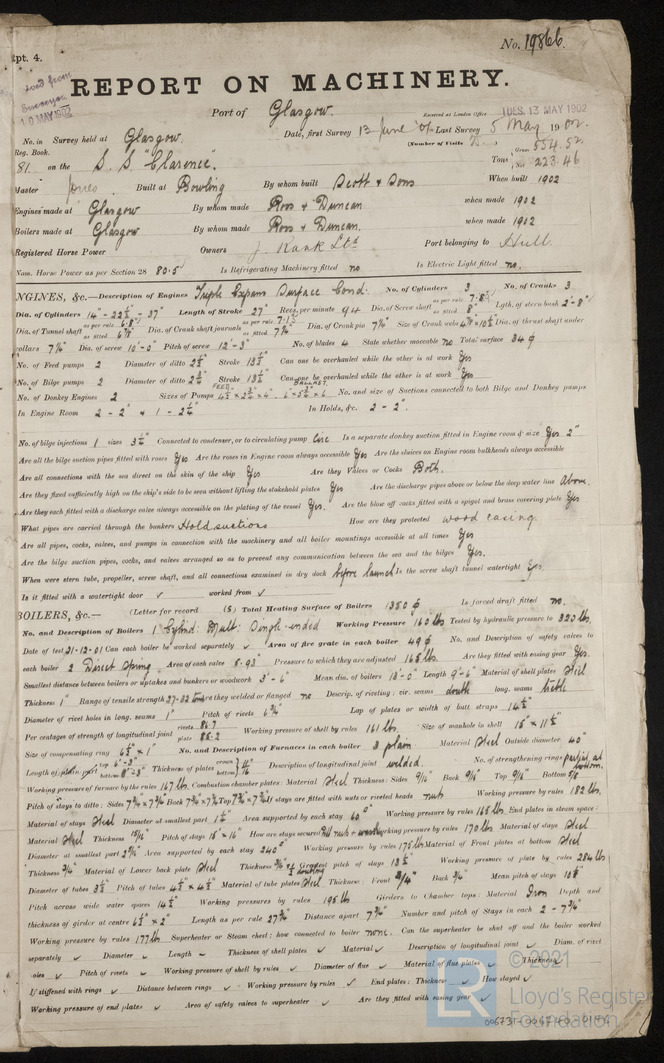 No. 19866.
Rpt. 4.
REPORT ON MACHINERY.
Port of Glasgow.
Received at London Office TUES. 13 MAY 1902
No. in Survey held at Glasgow Date, first Survey 13 June '01 Last Survey 5 May 1902.
Reg. Book. (Number of Visits
81. on the S.S. "Clarence". Tons Gross 554.52 Net 223.46
Master Jones Built at Bowling By whom built Scott & Sons When built 1902
Engines made at Glasgow By whom made Ross & Duncan when made 1902
Boilers made at Glasgow By whom made Ross & Duncan when made 1902
Registered Horse Power Owners J. Rank Ltd Port belonging to Hull
Nom. Horse Power as per Section 28 80.5 Is Refrigerating Machinery fitted no Is Electric Light fitted no.
ENGINES, &c.—Description of Engines Triple Expans Surface Cond. No. of Cylinders 3 No. of Cranks 3
Dia. of Cylinders 14" - 22½" - 37" Length of Stroke 27" Revs. per minute 94 Dia. of Screw shaft as per rule 7.8" as fitted 8" Lgth. of stern bush 2'-8"
Dia. of Tunnel shaft as per rule as fitted Dia. of Crank shaft journals as per rule as fitted Dia. of Crank pin 7¼" Size of Crank webs Dia. of thrust shaft under
collars 7¼" Dia. of screw 10'-0" Pitch of screw 12'-3" No. of blades 4 State whether moceable no Total surface 34
No. of Feed pumps 2 Diameter of ditto 2½" Stroke 13½" Can one be overhauled while the other is at work Yes
No. of Bilge pumps 2 Diameter of ditto Stroke 13½" Can one be overhauled while the other is at work Yes
No. of Donkey Engines 2 Sizes of Pumps FEED BALLAST No. and size of Suctions connected to both Bilge and Donkey pumps
In Engine Room 2 - 2" & 1 - 2½" In Holds, &c. 2 - 2".
No. of bilge injections 1 sizes 3½" Connected to condenser, or to circulating pump Circ. Is a separate donkey suction fitted in Engine room & size Yes 2"
Are all the bilge suction pipes fitted with roses Yes Are the roses in Engine room always accessible Yes Are the sluices on Engine room bulkheads always accessible
Are all connections with the sea direct on the skin of the ship Yes Are they Valves or Cocks Both.
Are they fixed sufficiently high on the ship's side to be seen without lifting the stokehold plates Yes Are the discharge pipes above or below the deep water line above.
Are they each fitted with a discharge valve always accessible on the plating of the vessel Yes. Are the blow off cocks fitted with a spigot and brass covering plate Yes
What pipes are carried through the bunkers Hold suctions How are they protected wood casing.
Are all pipes, cocks, valves, and pumps in connection with the machinery and all boiler mountings accessible at all times Yes
Are the bilge suction pipes, cocks, and valves arranged so as to prevent any communication between the sea and the bilges Yes.
When were stern tube, propeller, screw shaft, and all connections examined in dry dock before launch Is the screw shaft tunnel watertight Yes.
Is it fitted with a watertight door ✓ worked from ✓
BOILERS, &c.— (Letter for record (S) Total Heating Surface of Boilers 1350 Is forced draft fitted no.
No. and Description of Boilers 1 Cylind: Mult: Single-ended Working Pressure 160 lbs Tested by hydraulic pressure to 320 lbs.
Date of test 31.12.01 Can each boiler be worked separately ✓ Area of fire grate in each boiler 49 No. and Description of safety valves to
each boiler 2 Direct Spring. Area of each valve 5.93" Pressure to which they are adjusted 165 lbs. Are they fitted with easing gear Yes.
Smallest distance between boilers or uptakes and bunkers or woodwork 3'-6" Mean dia. of boilers 13'-0" Length 9'-6" Material of shell plates Steel
Thickness 1" Range of tensile strength 27-32 tons Are they welded or flanged no Descrip. of riveting: cir. seams double long. seams treble
Diameter of rivet holes in long. seams 1" Pitch of rivets 6¾" Lap of plates or width of butt straps 14½"
Per centages of strength of longitudinal joint rivets 86.7 plate 85.2 Working pressure of shell by rules 161 lbs Size of manhole in shell 15" × 11½"
Size of compensating ring 6½" × 1" No. and Description of Furnaces in each boiler 3 plain Material Steel Outside diameter 40"
Length of plain part top 6'-3" bottom Thickness of plates crown bottom Description of longitudinal joint welded. No. of strengthening rings partial at bottom.
Working pressure of furnace by the rules 167 lbs Combustion chamber plates: Material Steel Thickness: Sides 9/16" Back 9/16" Top 9/16" Bottom 5/8
Pitch of stays to ditto: Sides 7¾" × 7¾" Back 7¾" × 7¾" Top 7¾" × 7¾" If stays are fitted with nuts or riveted heads nuts Working pressure by rules 182 lbs.
Material of stays Steel Diameter at smallest part 1½" Area supported by each stay 60 Working pressure by rules 165 lbs. End plates in steam space:
Material Steel Thickness 15/16" Pitch of stays 15" × 16" How are stays secured Working pressure by rules 170 lbs. Material of stays Steel
Diameter at smallest part Area supported by each stay 240 Working pressure by rules 175 lbs Material of Front plates at bottom Steel
Thickness ¾" Material of Lower back plate Steel Thickness Greatest pitch of stays 13½" Working pressure of plate by rules 284 lbs
Diameter of tubes 3½" Pitch of tubes 4½" × 4½" Material of tube plates Steel Thickness: Front ¾" Back ¾" Mean pitch of stays
Pitch across wide water spaces 14½" Working pressures by rules 195 lbs Girders to Chamber tops: Material Iron Depth and
thickness of girder at centre 6½" × 2" Length as per rule 27¾" Distance apart 7¾" Number and pitch of Stays in each 2 - 7¾"
Working pressure by rules 177 lbs Superheater or Steam chest; how connected to boiler none. Can the superheater be shut off and the boiler worked
separately ✓ Diameter ✓ Length ✓ Thickness of shell plates ✓ Material ✓ Description of longitudinal joint ✓ Diam. of rivet
holes ✓ Pitch of rivets ✓ Working pressure of shell by rules ✓ Diameter of flue ✓ Material of flue plates ✓ Thickness ✓
If stiffened with rings ✓ Distance between rings ✓ Working pressure by rules ✓ End plates: Thickness ✓ How stayed ✓
Working pressure of end plates ✓ Area of safety valves to superheater ✓ Are they fitted with easing gear ✓
© 2021
Lloyd's Register
Foundation